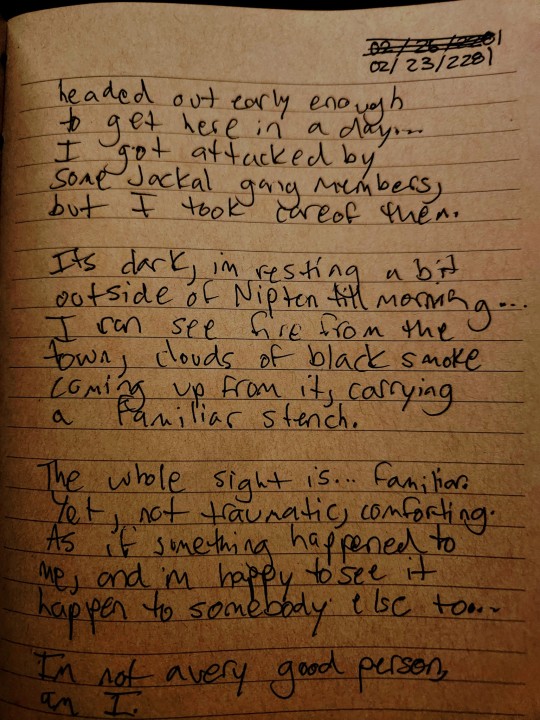 02/26/2281
02/23/2281
headed out early enough
to get here in a day...
I got attacked by
some Jackal gang members,
but I took careof them.
Its dark, im resting a bit
outside of Nipton till morning...
I can see fire from the
town, clouds of black smoke
coming up from it, carrying
a familiar stench.
The whole sight is... familiar.
Yet, not traumatic, comforting.
As if something happened to
me, and im happy to see it
happen to somebody else to...
Im not avery good person,
am I.